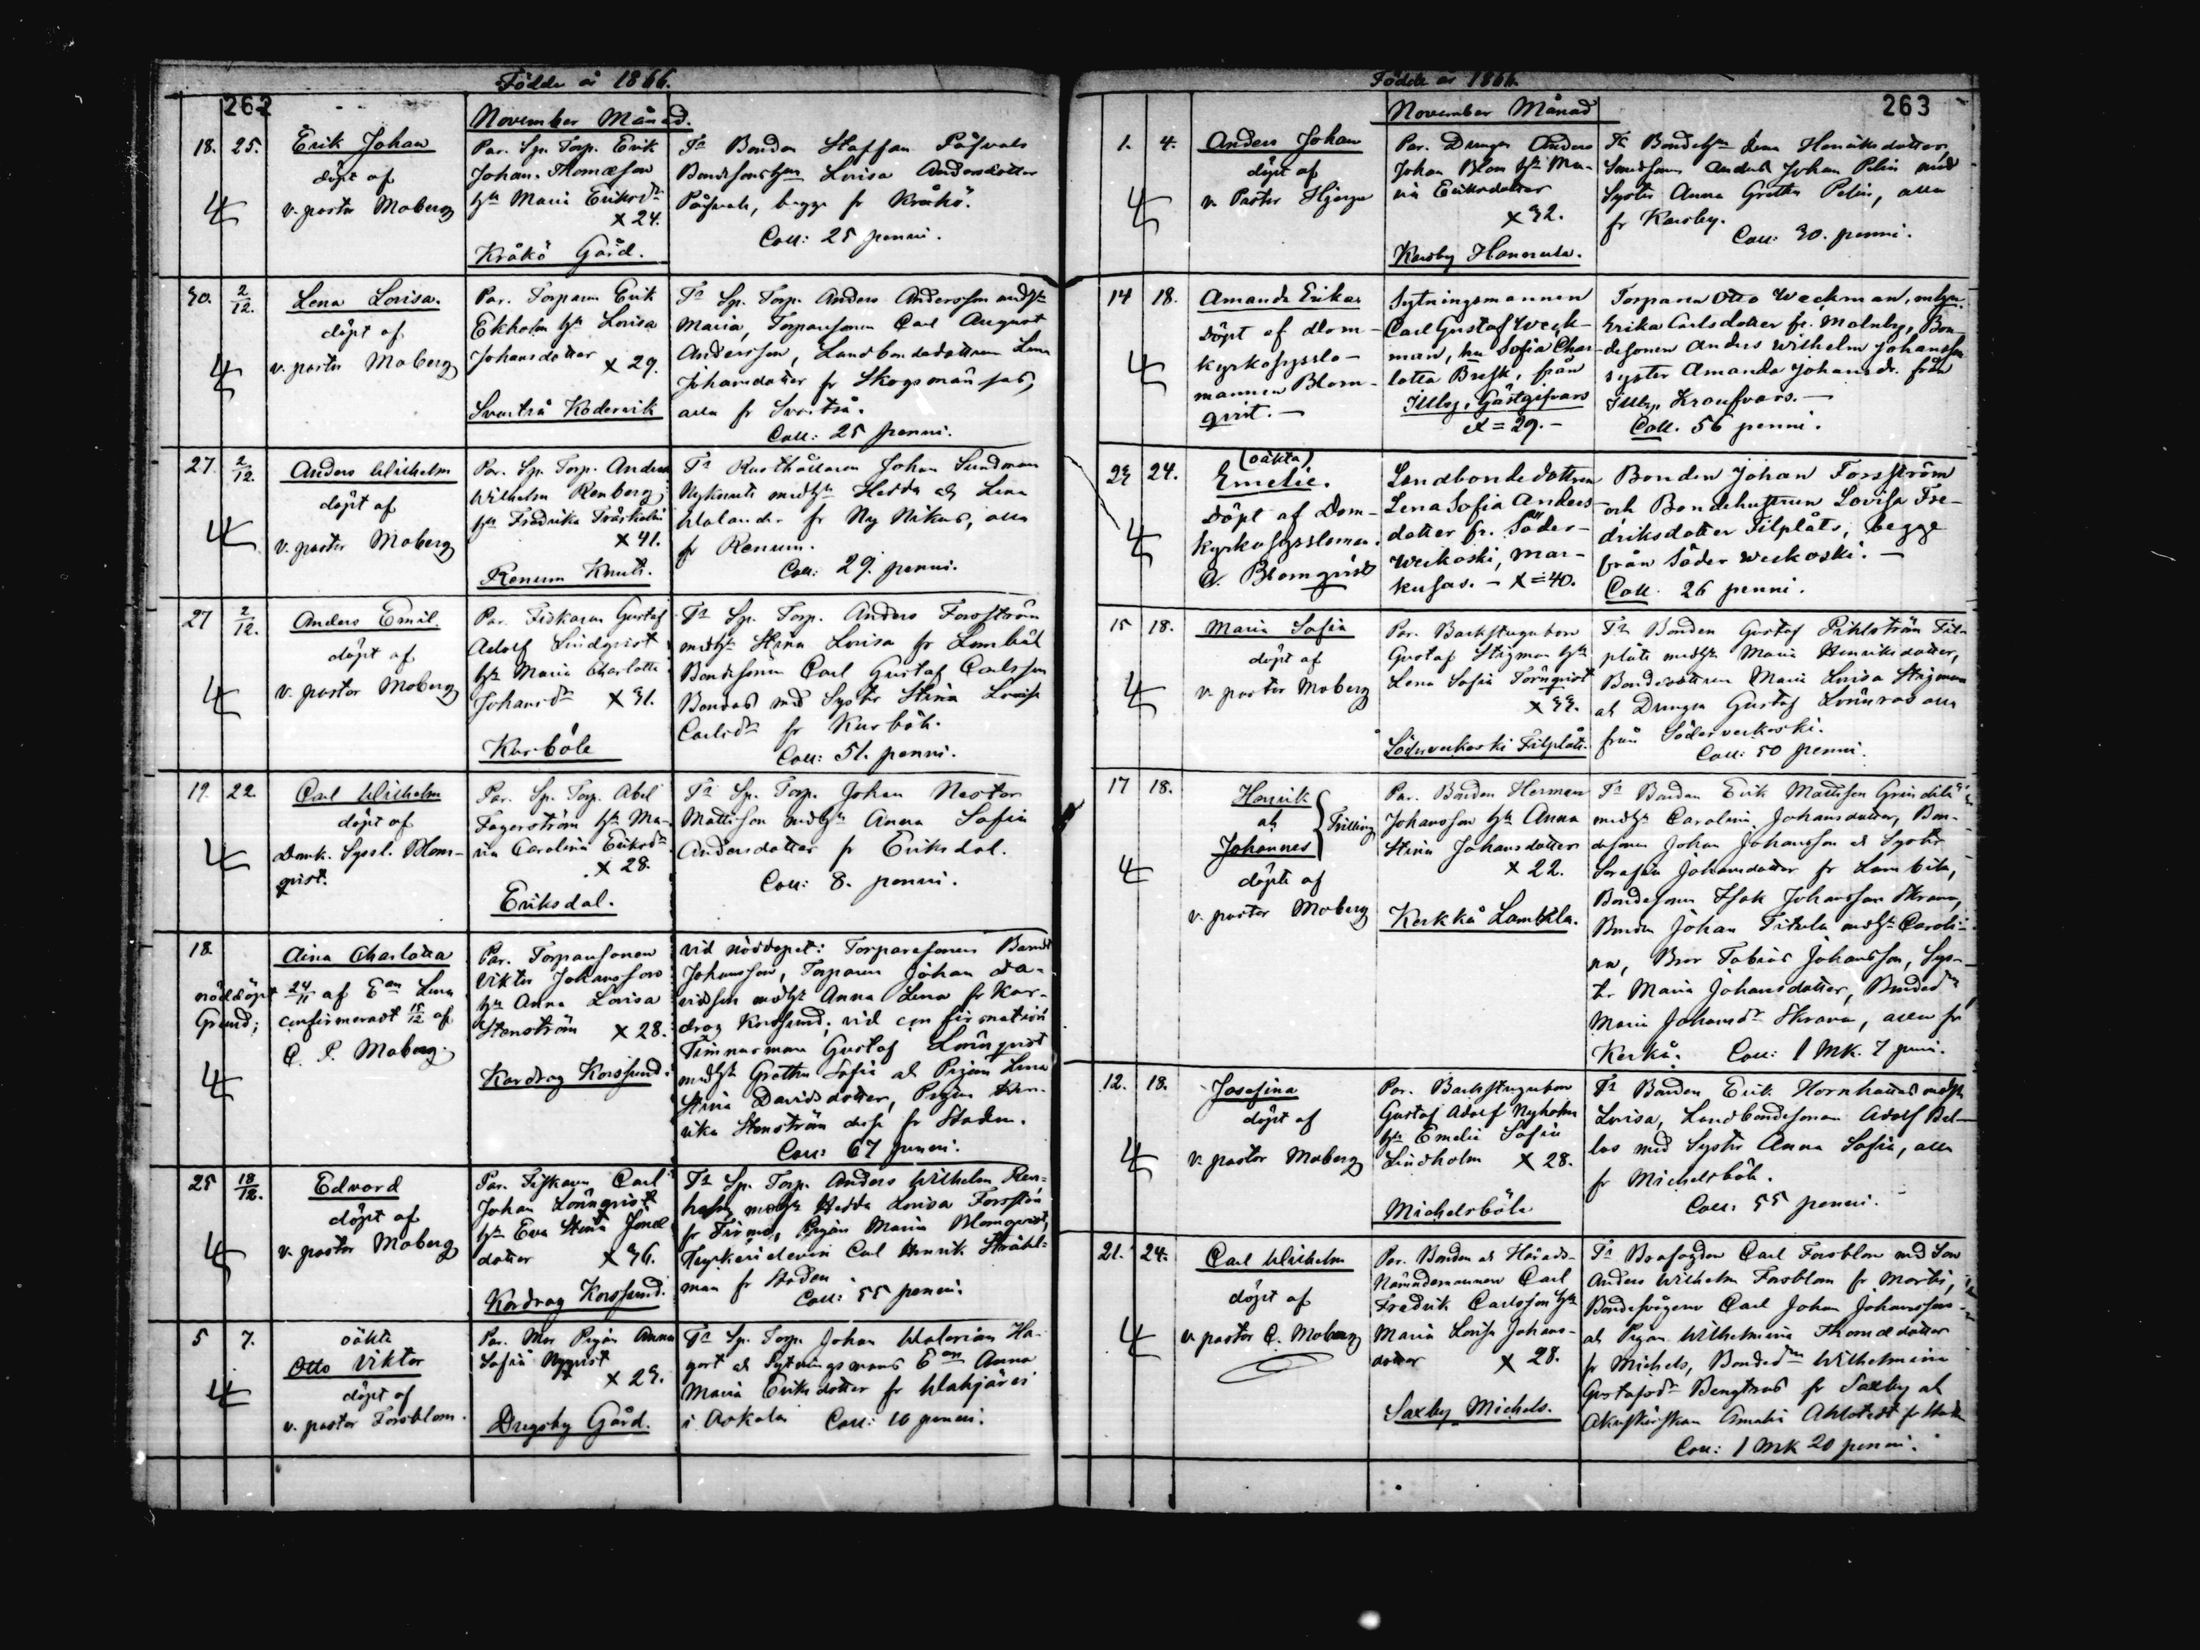 Födde år 1866.
262
November Månad.
18. 25. Erik Johan
döpt af
v. pastor Moberg
Par. Sp. Torp. Erik
Johan Thomæson
hu Maria Eriksdr
x 24.
Kråkö Gård.
Tn Bonden Staffan Påfvals
Bondesonhun Lovisa Andersdotter
Påfvals, begge fr Kråkö.
Coll: 25 penni.
30. 2/12. Lena Lovisa.
döpt af
v. pastor Moberg
Par. Torparen Erik
Ekholm hu Lovisa
Johansdotter x 29.
Svartså Kodervik
Tn Sp. Torp. Anders Andersson medhu
Maria, Torparesonen Carl August
Andersson, Landbondedottren Lena
Johansdotter fr Skogsmänsas,
alla fr Svartså.
Coll: 25 penni.
27. 2/12. Anders Wilhelm
döpt af
v. pastor Moberg
Par. Sp. Torp. Anders
Wilhelm Renberg
hu Fredrika
x 41.
Renum Knuts.
Tn Rusthållaren Johan Sundman
medhu Hedda och Lena
fr Ny Nikus, alla
fr Renum.
Coll: 29. penni.
27 2/12. Anders Emil.
döpt af
v. pastor Moberg
Par. Fiskaren Gustaf
Adolf Lindqvist
hu Maria Charlotta
Johansdr x 31.
Karböle
Tn Sp. Torp. Anders Forsström
medhu Stina Lovisa fr
Bondesonen Carl Gustaf Carlsson
Bondas med Syster Stina Lovisa
Carlsdr fr Karböle.
Coll: 51. penni.
19. 22. Carl Wilhelm
döpt af
Domk. Syssl. Blom-
qvist.
Par. Sp. Torp. Abel
Fagerström hu Ma-
ria Carolina Eriksdr
x 28.
Eriksdal.
Tn Sp. Torp. Johan Nestor
Mattsson medhu Anna Sofia
Andersdotter fr Eriksdal.
Coll: 8. penni.
18. Aina Charlotta
nöddöpt 24/11 af Ean Lena
Grund; confirmeradt 15/12 af
C. P. Moberg.
Par. Torparesonen
Viktor Johansson
hu Anna Lovisa
Stenström x 28.
Kardrag Korssund.
vid nöddopet: Torparesonen
Johansson, Torparen Johan Da-
vidsson medhu Anna Lena fr Kar-
drag Korssund; vid confirmation
Timmerman Gustaf Lönnqvist
medhu Gretha Sofia och Pigan Lena
Stina Davidsdotter, Pigan
Stenström desse fr Staden.
Coll: 67 penni.
25 18/12. Edvard
döpt af
v. pastor Moberg
Par. Fiskaren Carl
Johan Lönnqvist
hu Eva Stina
dotter x 36.
Kardrag Korssund.
Tn Sp. Torp. Anders Wilhelm
medhu Hedda Lovisa Forsström
fr Pigan Maria Blomqvist,
Carl Henrik Stråhl-
man fr Staden
Coll: 55 penni.
5 7. oäkta
Otto Viktor
döpt af
v. pastor Forsblom.
Par. Mor Pigan Anna
Sofia Nyqvist
x 23.
Drägsby Gård.
Tn Sp. Torp. Johan
och Sytningsmans Ean Anna
Maria Eriksdotter fr Wahijärvi
i Askola Coll: 10 penni.
Födde år 1866.
263
November Månad
1. 4. Anders Johan
döpt af
v. Pastor
Par. Drengen Anders
Johan Blom hu Ma-
ria Eriksdotter
x 32.
Karsby Hannula.
Tn Bondehun Lena Henriksdotter,
Smedsonen Anders Johan Pelin med
Syster Anna Gretha Pelin, alla
fr Karsby.
Coll: 30. penni.
14 18. Amanda Erika
Döpt af Dom-
kyrkosysslo-
mannen Blom-
qvist. –
Sytningsmannen
Carl Gustaf Weck-
man, hu Sofia Char-
lotta Brask, från
Illby, Gästgifvars
x = 29. –
Torparen Otto Weckman, mhu
Erika Carlsdotter fr. Malmby, Bon-
desonen Anders Wilhelm Johansson
syster Amanda Johansdr. från
Illby, Kroufvars. –
Coll. 56 penni.
23 24. (oäkta)
Emelie.
Döpt af Dom-
kyrkosysslomn.
A. Blomqvist
Landbondedottren
Lena Sofia Anders
dotter fr. Söder-
Weckoski, Mar-
kusas. – x = 40.
Bonden Johan Forsström
och Bondehustrun Lovisa Fre-
driksdotter Filplåts, begge
från Söder Weckoski. –
Coll. 26 penni.
15 18. Maria Sofia
döpt af
v. pastor Moberg
Par. Backstugubon
Gustaf Stigman hu
Lena Sofia Törnqvist
x 33.
Söderveckoski Filplåts.
Tn Bonden Gustaf Pihlström Fil-
plåts medhu Maria Henriksdotter,
Bondedottren Maria Lovisa Stigman
och Drengen Gustaf Lönnros alla
från Söderveckoski.
Coll: 50 penni.
17 18. Henrik
och
Johannes
Tvilling
döpte af
v. pastor Moberg
Par. Bonden Herman
Johansson hu Anna
Stina Johansdotter
x 22.
Kerkkå Lambila.
Tn Bonden Erik Mattsson
medhu Carolina Johansdotter, Bon-
desonen Johan Johansson och Syster
Serafia Johansdotter fr Lambila,
Bondesonen Isak Johansson Skrava,
Bonden Johan medhu Caroli-
na, Bror Tobias Johansson, Sys-
ter Maria Johansdotter, Bondedn
Maria Johansdr Skrava, alla fr
Kerkå. Coll: 1 Mk. 7 pen.
12. 18. Josefina
döpt af
v. pastor Moberg
Par. Backstugubon
Gustaf Adolf Nyholm
hu Emelie Sofia
Lindholm x 28.
Michelsböle
Tn Bonden Erik Hornhattas medhu
Lovisa, Landbondesonen Adolf
med Syster Anna Sofia, alla
fr Michelsböle.
Coll: 55 penni.
21. 24. Carl Wilhelm
döpt af
v. pastor C. Moberg
Par. Bonden och Härads-
Nämndemannen Carl
Fredrik Carlsson hu
Maria Lovisa Johans-
dotter x 28.
Saxby Michels.
Tn Brofogden Carl Forsblom med Son
Anders Wilhelm Forsblom fr
Bondesvågern Carl Johan Johansson
och Pigan Wilhelmina Thomædotter
fr Michels, Bondedn Wilhelmina
Gustafsdr Bengtsas fr Saxby och
Amalia Ahlstedt fr Staden
Coll: 1 Mk 20 penni.